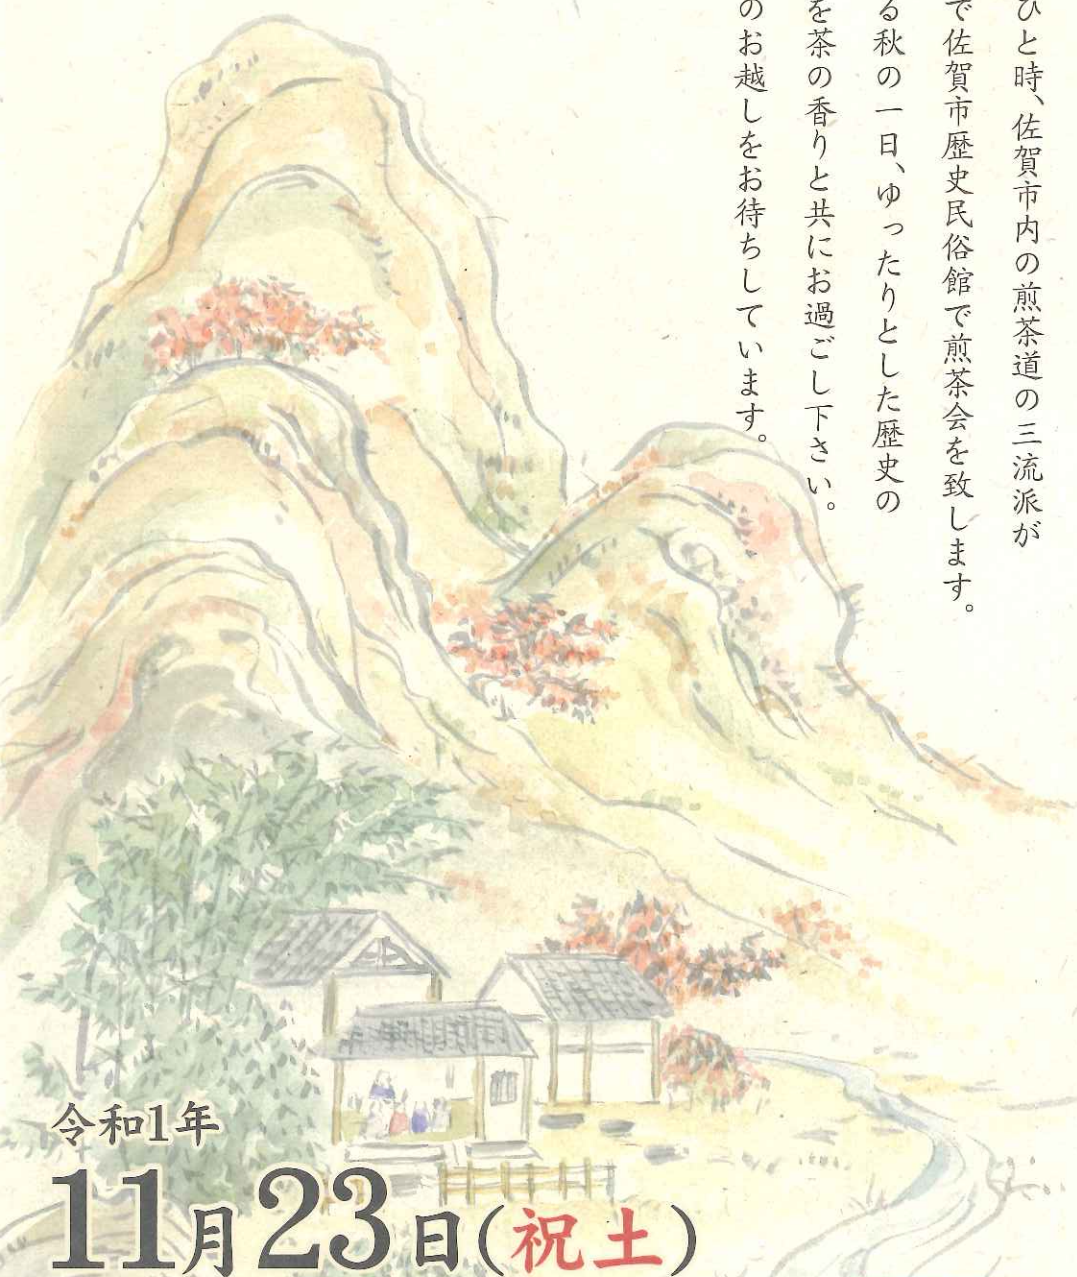 ひと時、佐賀市内の煎茶道の三流派が
で佐賀市歴史民俗館で煎茶会を致します。
る秋の一日、ゆったりとした歴史の
を茶の香りと共にお過ごし下さい。
のお越しをお待ちしています。
令和1年
11月23日(祝土)